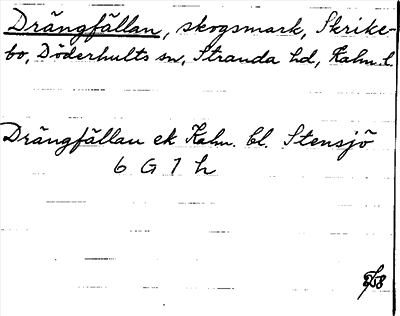 Drängfällan, skogsmark, Skrike-
bo, Döderhults sn, Stranda hd, Kalm. l.
Drängfällan ek Kalm. bl. Stensjö
6 G 1 h